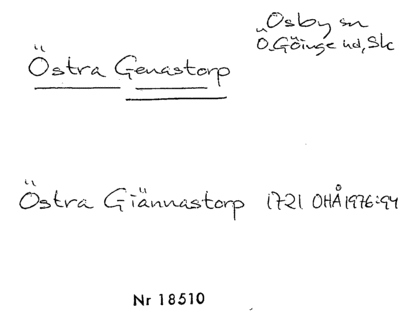 Osby sn
Ö. Göinge hd, Sk
Östra Genastorp
Östra Giännastorp 1721 OHÅ 1976:94
Nr 18510